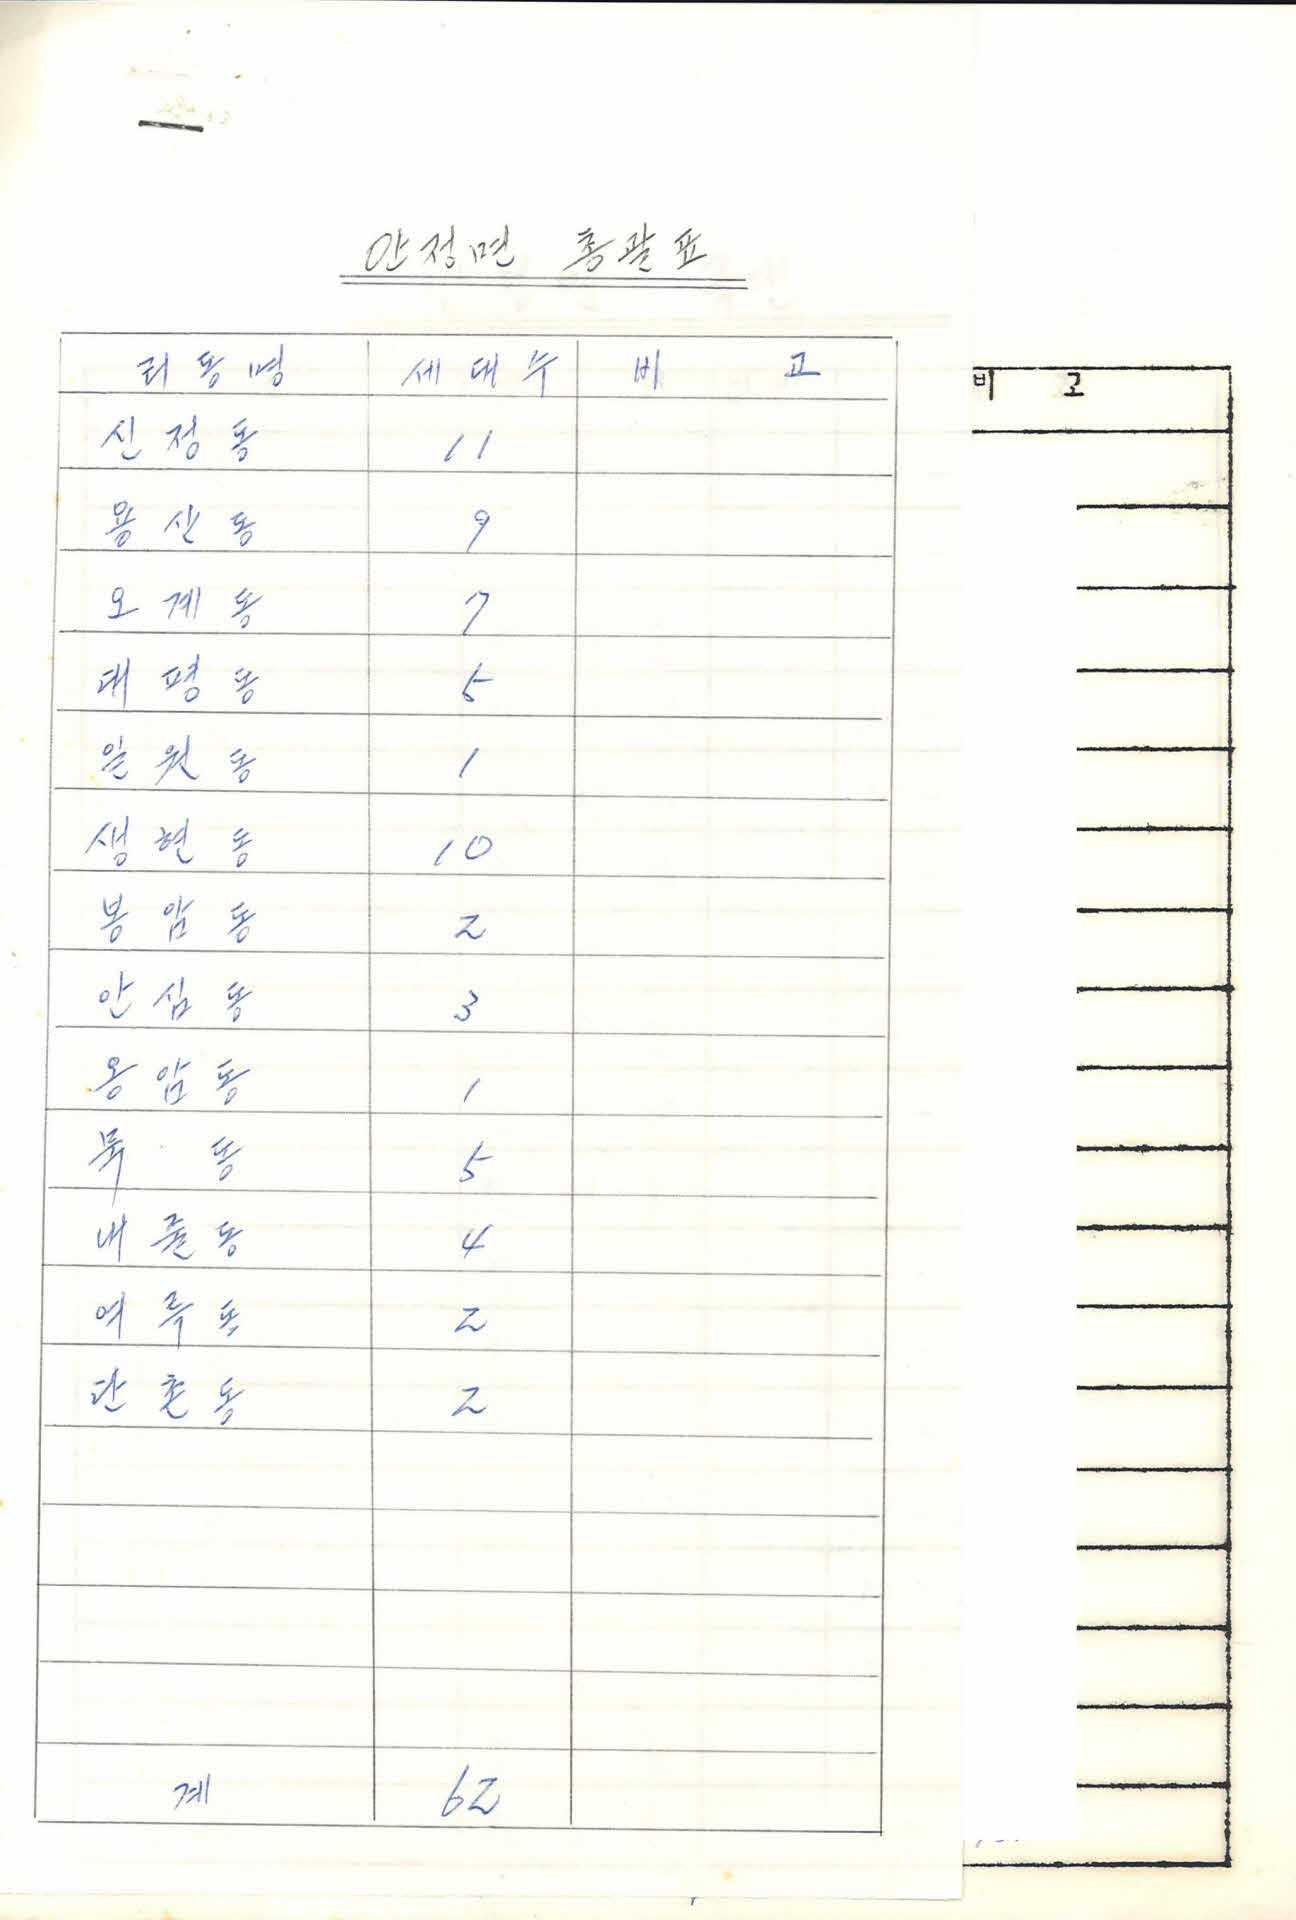 안정면 총괄표
리동명 세대수 비 고
비 고
신정동 11
용산동 9
오계동 7
대평동 5
일원동 1
생현동 10
봉암동 2
안심동 3
옹암동 1
묵 동 5
내줄동 4
여륵동 2
단촌동 2
계 62